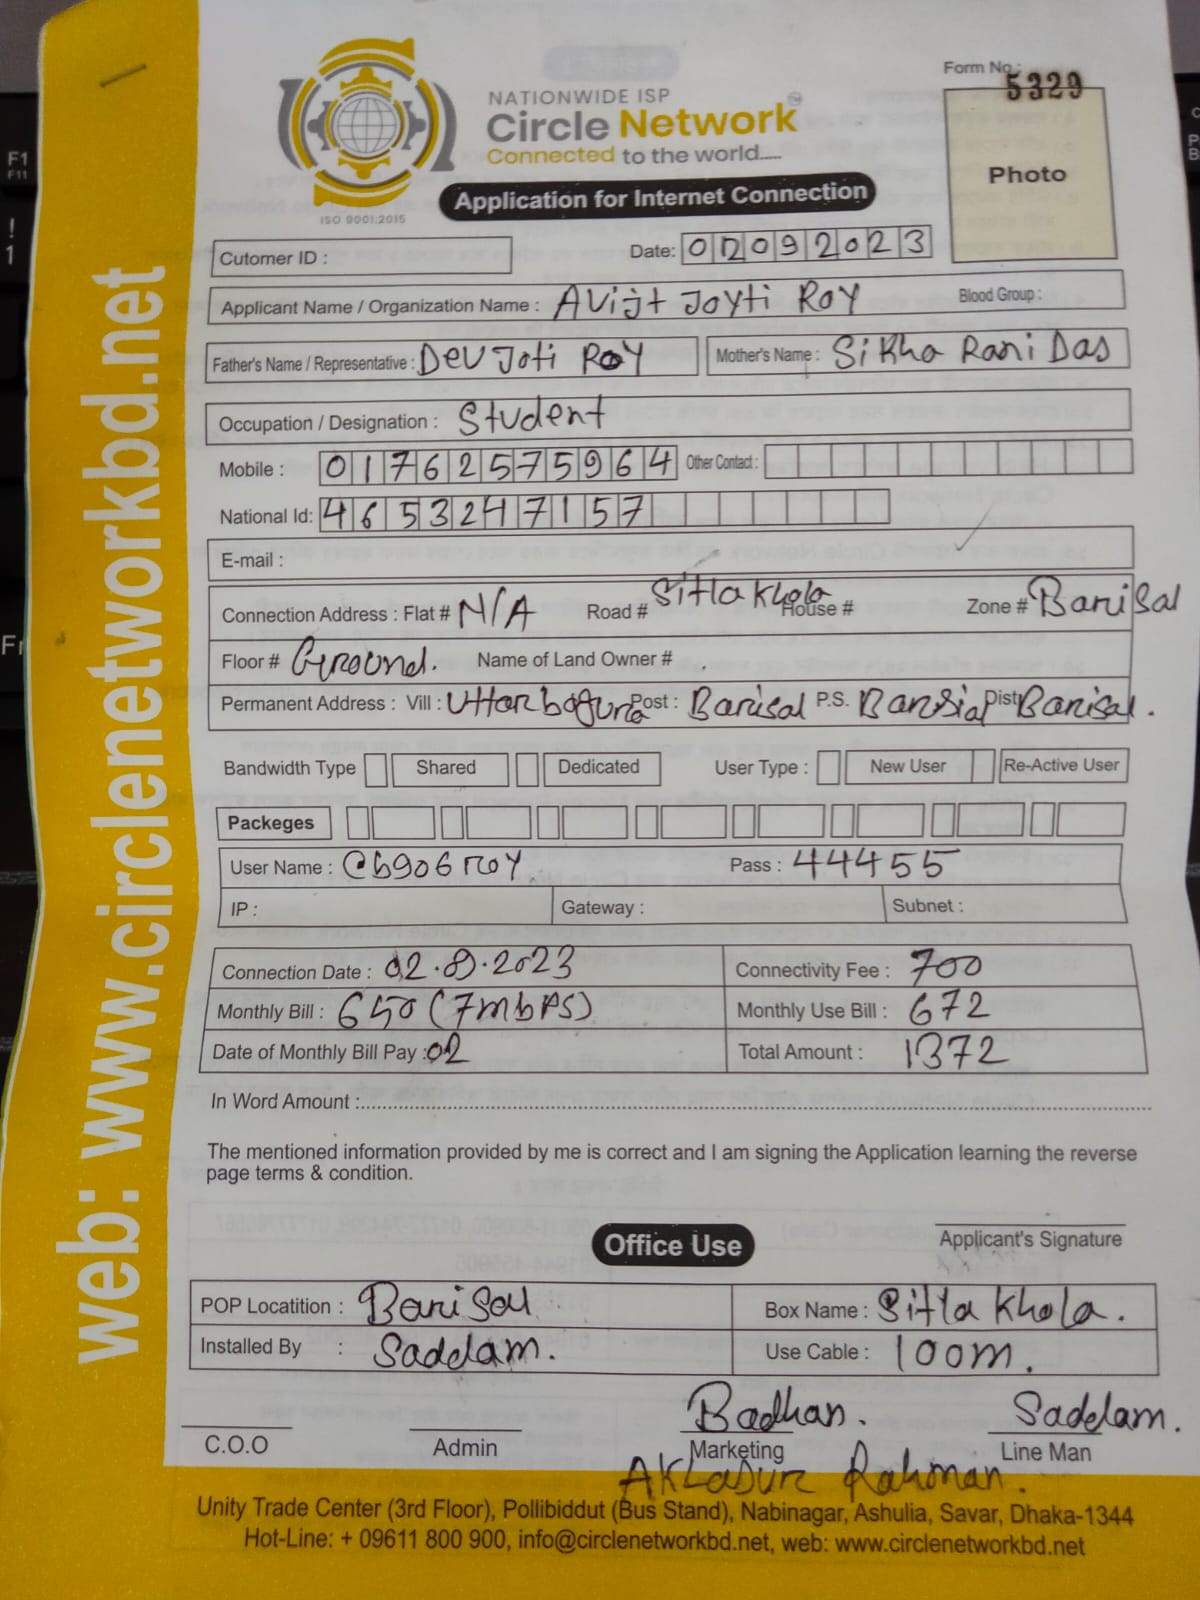 Form No.:
5329
NATIONWIDE ISP
Circle Network
Connected to the world.....
ISO 9001:2015
Application for Internet Connection
Photo
Cutomer ID :
Date: 02092023
Applicant Name / Organization Name : Avijt Joyti Roy Blood Group :
Father's Name / Representative : Dev Joti Roy Mother's Name : Sikha Rani Das
Occupation / Designation : Student
Mobile : 01762575964 Other Contact :
National Id: 4653247157
E-mail :
Connection Address : Flat # N/A Road # Sitla Khola House # Zone # Barisal
Floor # Ground. Name of Land Owner #
Permanent Address : Vill : Uttar bogura Post : Barisal P.S. Barisal Dist Barisal.
Bandwidth Type Shared Dedicated User Type : New User Re-Active User
Packeges
User Name : Pass : 44455
IP : Gateway : Subnet :
Connection Date : Connectivity Fee : 700
Monthly Bill : 650 (7mbps) Monthly Use Bill : 672
Date of Monthly Bill Pay : 02 Total Amount : 1372
In Word Amount :
The mentioned information provided by me is correct and I am signing the Application learning the reverse
page terms & condition.
Applicant's Signature
Office Use
POP Locatition : Barisal Box Name : Sitla Khola.
Installed By : Saddam. Use Cable : 100m.
Badhan. Saddam.
C.O.O Admin Marketing Line Man
Rahman.
Unity Trade Center (3rd Floor), Pollibiddut (Bus Stand), Nabinagar, Ashulia, Savar, Dhaka-1344
Hot-Line: + 09611 800 900, info@circlenetworkbd.net, web: www.circlenetworkbd.net
web: www.circlenetworkbd.net